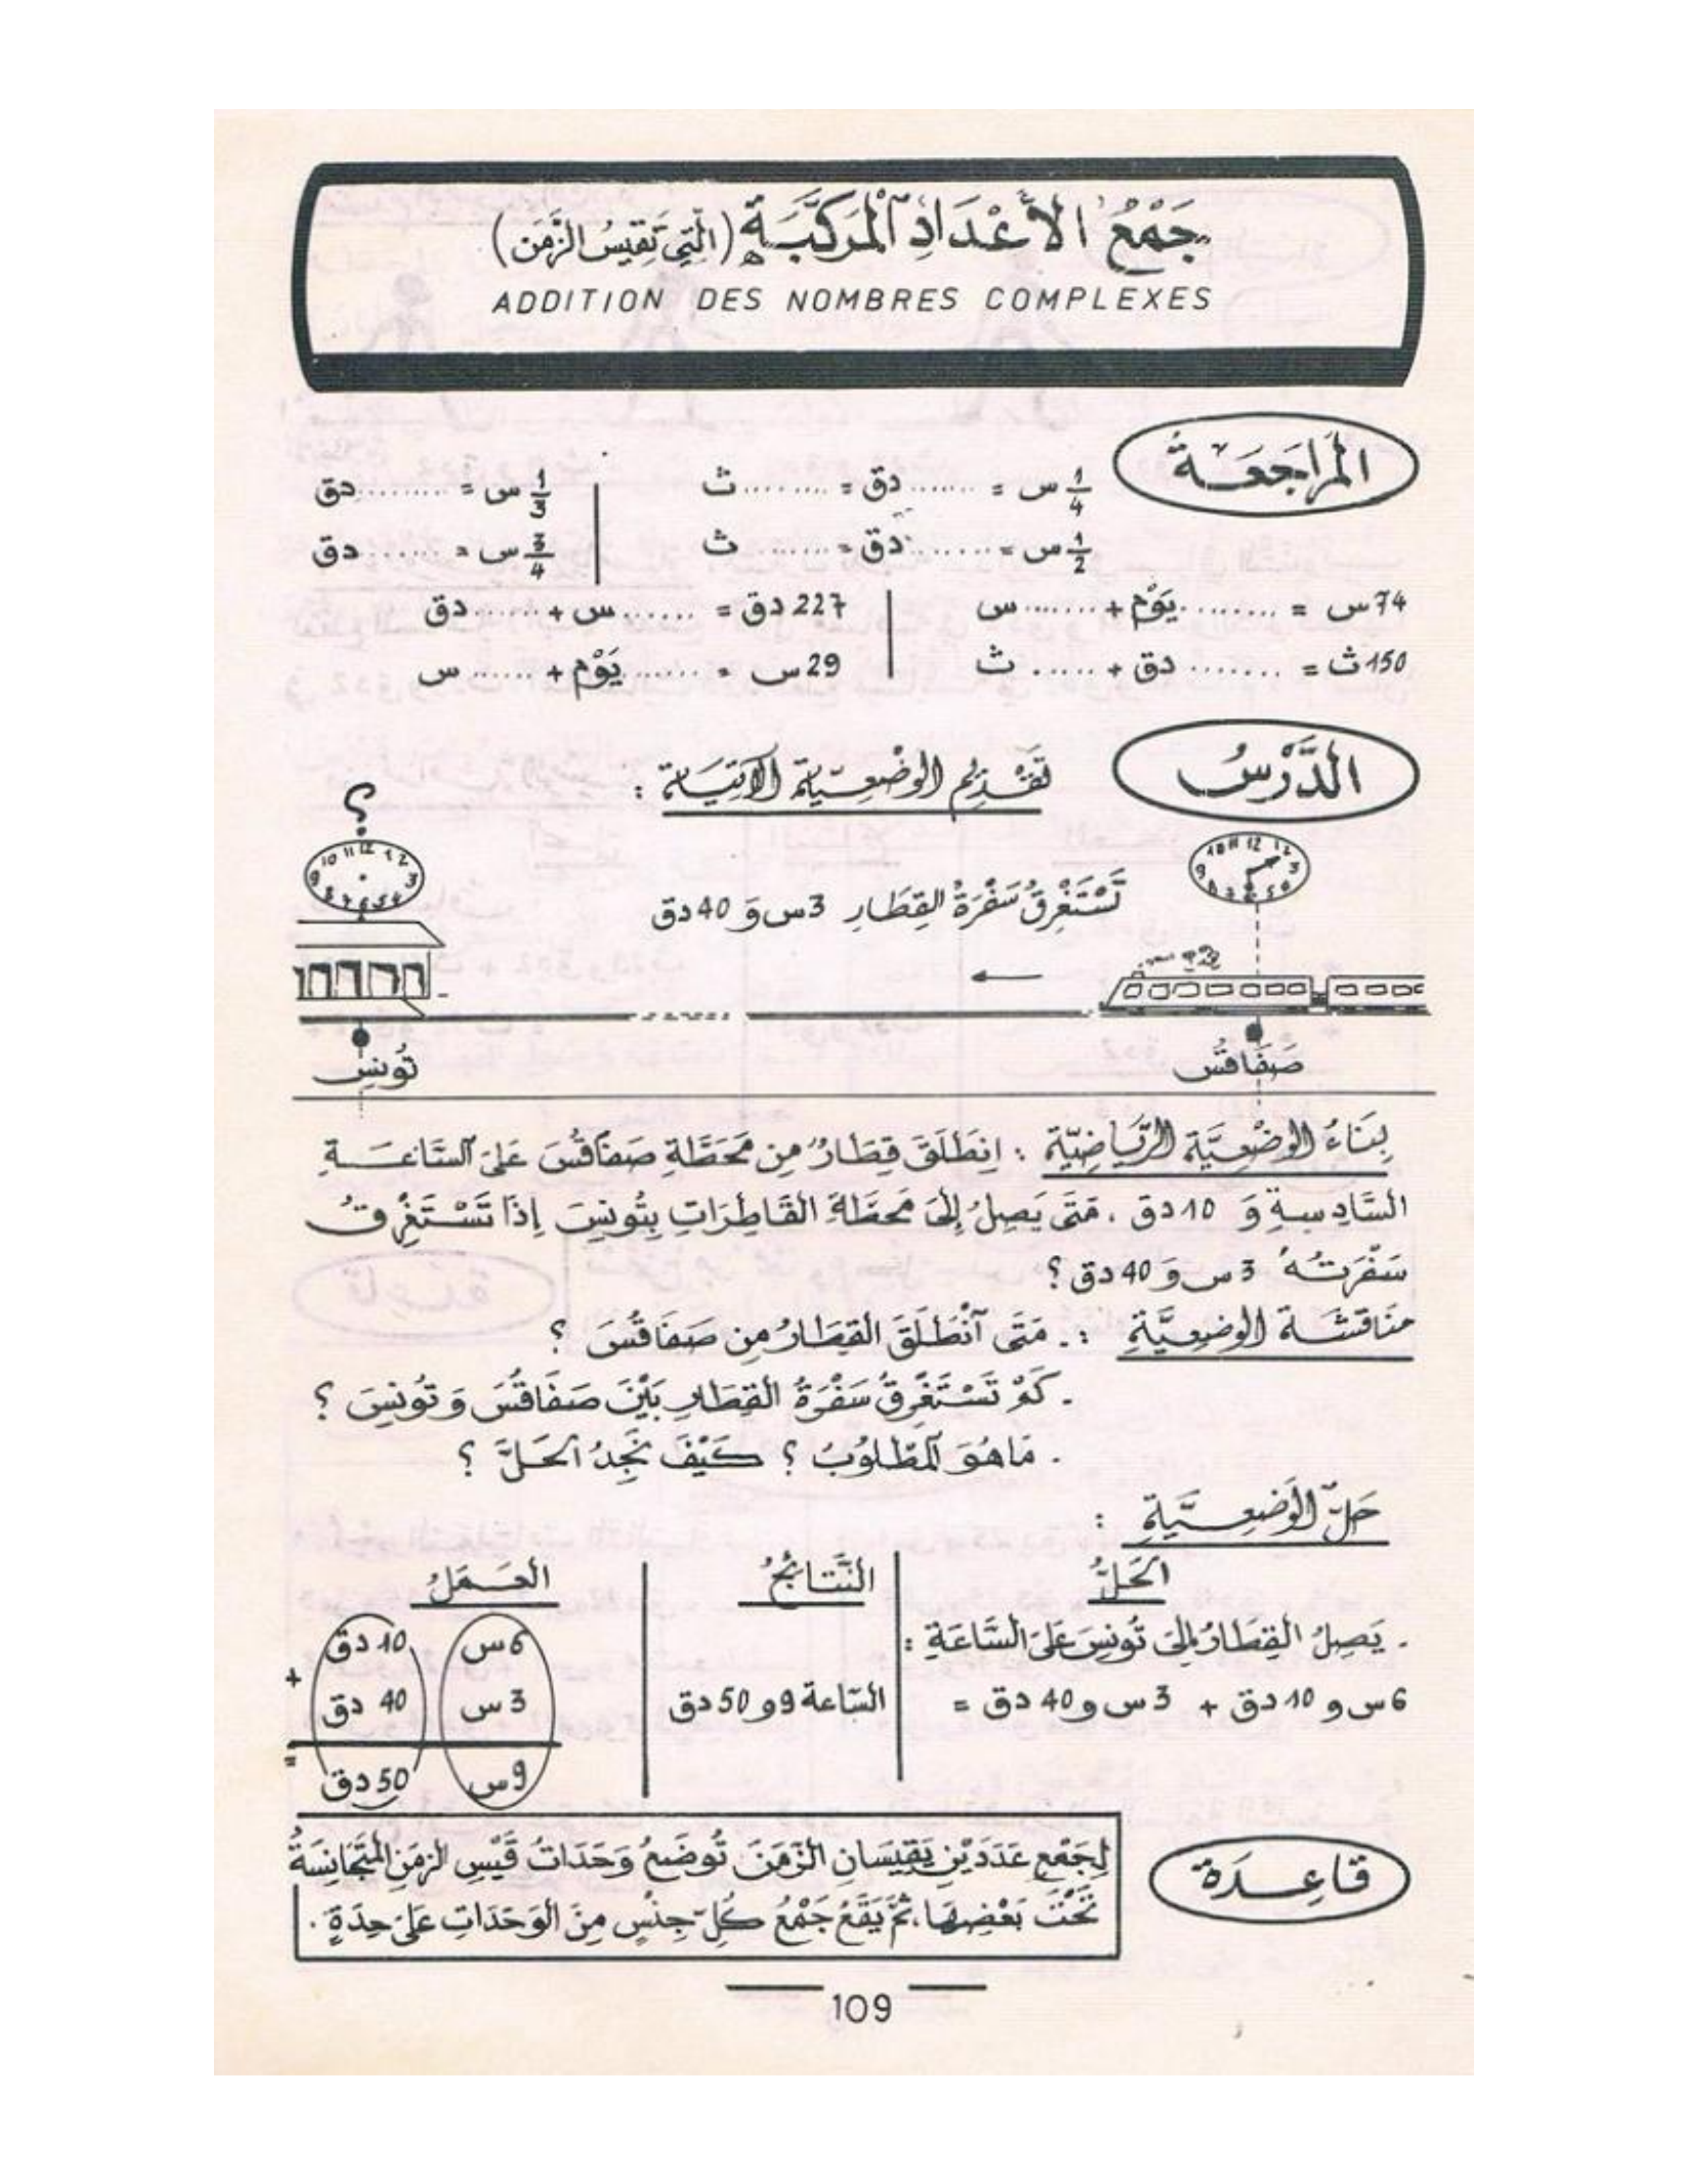 جَمْعُ الأَعْدَادِ الْمُرَكَّبَةِ (الَّتِي تَقِيسُ الزَّمَن)
ADDITION DES NOMBRES COMPLEXES
المُرَاجَعَةُ
1/4 س = ....... دق = ......... ث | 1/3 س = ......... دق
1/2 س = ....... دق = ....... ث | 3/4 س = ...... دق
74 س = ......... يَوْم + ....... س | 227 دق = ...... س + ....... دق
150 ث = ....... دق + ..... ث | 29 س = ....... يَوْم + ...... س
الدَّرْسُ
تَقْدِيم الوَضْعِيّة الآتِيَة :
؟
10 11 12 1 2 3 4 5 6 7 8 9
10 11 12 1 2 3 4 5 6 7 8 9
تَسْتَغْرِقُ سَفْرَةُ القِطَارِ 3 س وَ 40 دق
صَفَاقُس
تُونِس
بِنَاءُ الوَضْعِيَّةِ الرِّيَاضِيَّةِ : اِنْطَلَقَ قِطَارٌ مِن مَحَطَّةِ صَفَاقُسَ عَلَى السَّاعَةِ
السَّادِسةِ وَ 10 دق . مَتَى يَصِلُ إِلَى مَحَطَّةِ القَاطِرَاتِ بِتُونِسَ إِذَا تَسْتَغْرِقُ
سَفْرَتُهُ 3 س وَ 40 دق ؟
مناقشة الوضعيَّةِ : . مَتَى اَنْطَلَقَ القِطَارُ مِن صَفَاقُسَ ؟
. كَمْ تَسْتَغْرِقُ سَفْرَةُ القِطَارِ بَيْنَ صَفَاقُسَ وَ تُونِسَ ؟
. مَا هُوَ المَطْلُوبُ ؟ كَيْفَ نَجِدُ الحَلَّ ؟
حَلّ الوَضعِيَّةِ :
الحَلُّ
. يَصِلُ القِطَارُ إِلَى تُونِسَ عَلَى السَّاعَةِ :
6 س و 10 دق + 3 س و 40 دق =
النَّتَائِجُ
السّاعة 9 و 50 دق
العَمَلُ
6 س 10 دق
+
3 س 40 دق
=
9 س 50 دق
قَاعِدَة
لِجَمْعِ عَدَدَيْنِ يَقِيسَانِ الزَّمَنَ تُوضَعُ وَحَدَاتُ قَيْسِ الزمَنِ المُتَجَانِسَةُ
تَحْتَ بَعْضِهَا، ثُمَّ يَقَعُ جَمْعُ كُلِّ جِنْسٍ مِنَ الوَحَدَاتِ عَلَى حِدَةٍ .
109